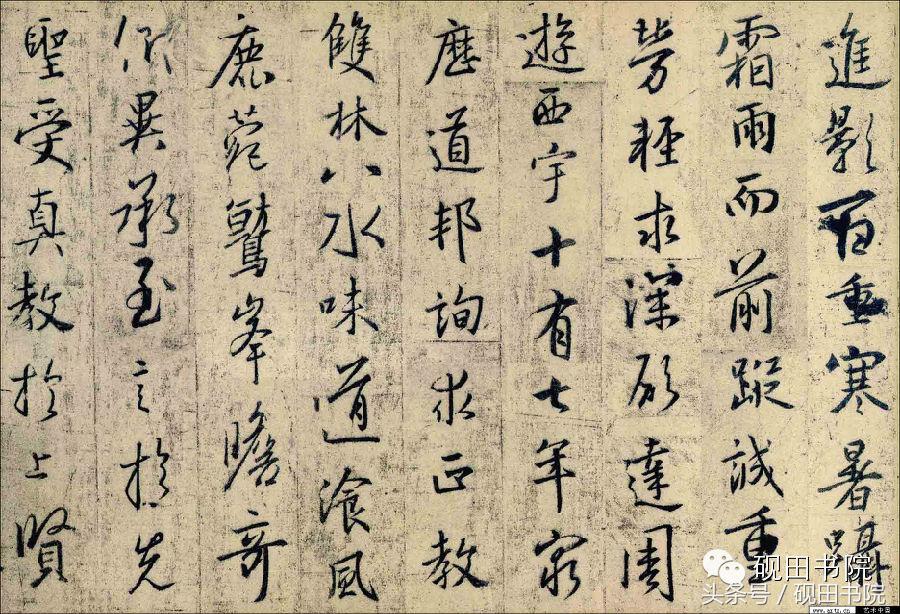 進影百重寒暑躡
霜雨而前蹤誠重
勞輕求深願達周
遊西宇十有七年窮
歷道邦詢求正教
雙林八水味道飡風
鹿菀鷲峯瞻奇
仰異承至言於先
聖受真教於上賢
砚田书院
头条号/砚田书院
www.artx.cn 艺术中国